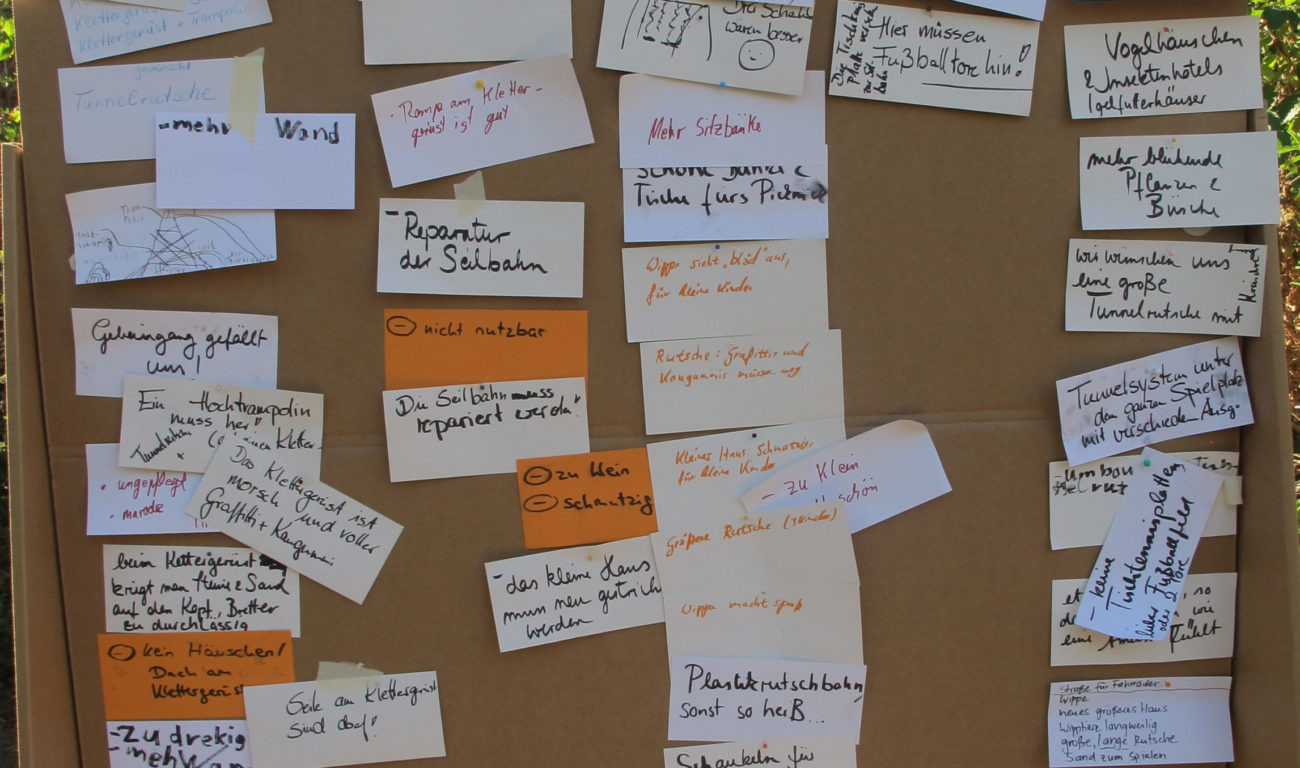 Klettergerüst + Trampolin
Klettergerüst + Trampolin
gewünscht
Tunnelrutsche
- mehr Wand
Geheimgang gefällt
uns!
Ein Hochtrampolin
muss her"
Das Klettergerüst ist
morsch und voller
Graffiti + Kaugummi
• ungepflegt
• marode
beim Kettergerüst
krigt man Steine & Sand
auf den Kopf, Bretter
zu durchlässig
- kein Häuschen/
Dach am
Klettergerüst
- Zu drekig
- meh Wan
Seile am Klettergrüst
sind doof!
• Rampe am Kletter-
grüst ist gut
- Reparatur
der Seilbahn
- nicht nutzbar
Die Seilbahn muss
repariert werden!
- zu klein
- schmutzig
- das kleine Haus
muss neu gestrich
werden
Die Schaukeln
waren besser
Mehr Sitzbänke
schöne Bänke &
Tische fürs Picknick
Wippe sieht „blöd" aus,
für kleine Kinder
Rutsche: Graffitis und
Kaugummis müssen weg
Kleines Haus: Schmutzig
für kleine Kinder
- zu klein
schön
Größere Rutsche (3 Kinder)
Wippe macht spaß
Plastikrutschbahn
sonst so heiß...
Schaukeln für
Hier müssen
Fußballtore hin!
Die Tischten
platte
Vogelhäuschen
& Insektenhotels
Igelfutterhäuser
mehr blühende
Pflanzen &
Büsche
wir wünschen uns
eine große
Tunnelrutsche mit
Tunnelsystem unter
dem ganzen Spielplatz
mit verschiede_ Ausg.
- keine
Tischtennisplatten
lieber Fußballfeld
oder 2 Tore
Straße für Fahrräder
Wippe
neues größeres Haus
Wipptiere langweilig
große, lange Rutsche
Sand zum Spielen